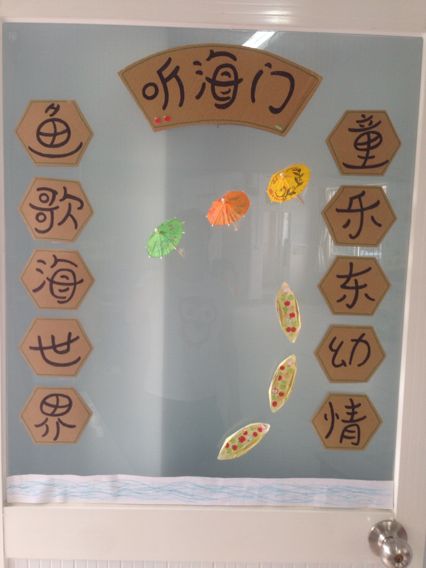 听海门
鱼歌海世界
童乐东幼情